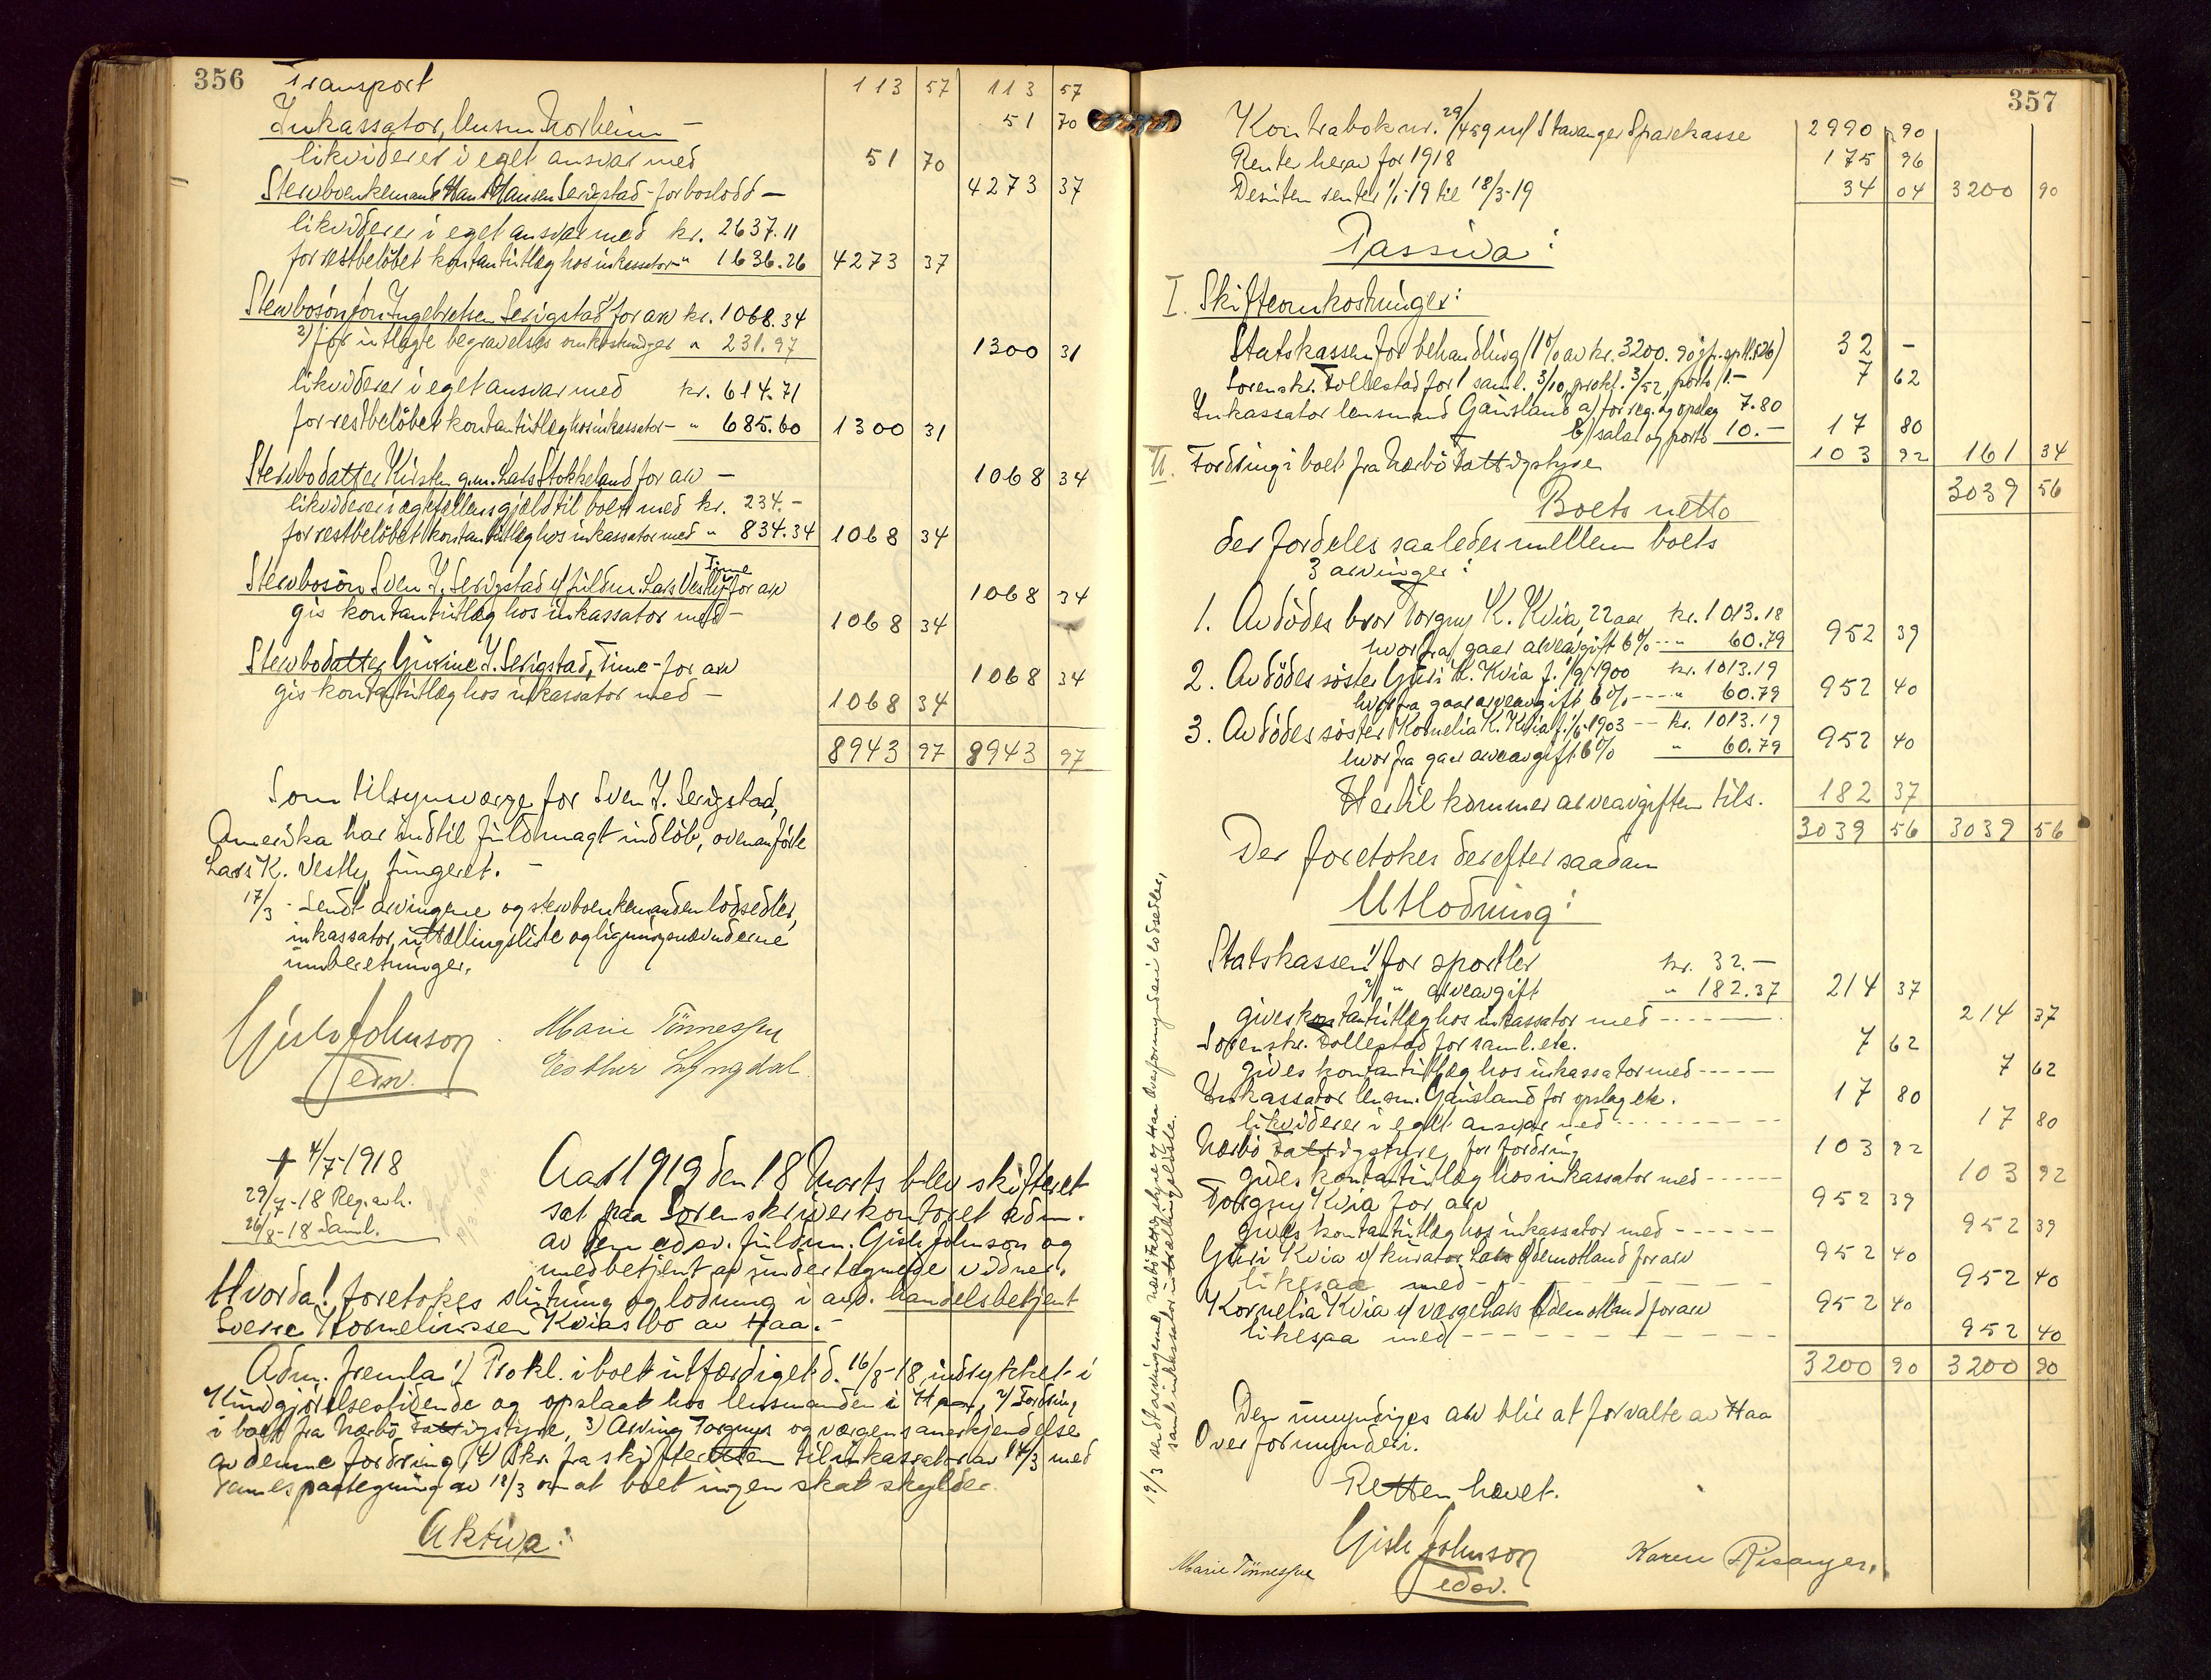 356
Transport 113 57 113 57
Inkassator, lensm. Norheim - 51 70
likviderer i eget ansvar med 51 70
Stervboenkemand Hans Hansen Serigstad - for boslodd - 4273 37
likviderer i eget ansvar med kr. 2637.11
for restbeløbet kontant utlæg hos inkassator - " 1636.26 4273 37
Stervbosøn Ingebretsen Serigstad 1/ for arv kr. 1068.34
2) for utlagte begravelses omkostninger " 231.97 1300 31
likviderer i eget ansvar med kr. 614.71
for restbeløbet kontant utlæg hos inkassator - " 685.60 1300 31
Stervbodatter Kirsten g.m. Lars Stokkeland for arv - 1068 34
likviderer i ægtefællens gjæld til boet med kr. 234.-
for restbeløbet kontant utlæg hos inkassator med " 834.34 1068 34
Stervbosøn Sven I. Serigstad v/ fuldm. Lars Vestly, Time for arv 1068 34
gis kontant utlæg hos inkassator med - 1068 34
Stervbodatter Gurine I. Serigstad, Time - for arv 1068 34
gis kontant utlæg hos inkassator med - 1068 34
8943 97 8943 97
Som tilsynsværge for Sven I. Serigstad,
Amerika har indtil fuldmagt indløb, ovenanførte
Lars K. Vestly fungeret. -
17/3 - Sendt arvingene og stervboenkemanden lodsedler,
inkassator, utællingsliste og ligningsnævnderne
innberetninger.
Gisle Johnson
edsv.
Marie Tønnessen
Esther Lyngdal
† 4/7-1918
29/7-18 Reg. avh.
26/8-18 Saml.
Aar 1919 den 18 Marts blev skifteret
sat paa Sorenskriverkontoret adm.
av den edsv. fuldm. Gisle Johnson og
medbetjent av undertegnede vidner.
Hvorda! foretokes slutning og lodning i avd. handelsbetjent
Sverre Korneliussen Kvias bo av Haa. -
Adm. fremla 1) Prokl. i boet utfærdiget d. 16/8-18, indrykket i
Kundgjørelsestidende og opslaat hos lensmanden i Haa, 2) Fordring
i boet fra Nærbø Fattigstyre, 3) Arving Torgnys og værgens anerkjendelse
av denne fordring, 4) Skr. fra skifteretten til inkassator av 14/3 med
sammes paategning av 18/3 om at boet ingen skat skylder.
Aktiva:
357
Kontrabok nr. 29/459 m/ Stavanger Sparekasse 2990 90
Rente herav for 1918 175 96
Desuten renter 1/1-19 til 18/3-19 34 04 3200 90
Passiva:
I. Skifteomkostninger:
Statskassen for behandling (1% av kr. 3200.90 jfr. sp.l. § 26) 32 -
Sorenskr. Tollestad for 1 saml. 3/10, prokl. 3/52, porto 1.- 7 62
Inkassator lensmand Gausland a) for reg. og opslag 7.80
b) salær og porto 10.- 17 80
II. Fordring i boet fra Nærbø Fattigstyre 103 92 161 34
Boets netto 3039 56
der fordeles saaledes mellem boets
3 arvinger:
1. Avdødes bror Torgny K. Kvia, 22 aar kr. 1013.18
hvorfra gaar arveavgift 6% --- " 60.79 952 39
2. Avdødes søster Guri K. Kvia f. 1/9-1900 kr. 1013.19
hvorfra gaar arveavgift 6% --- " 60.79 952 40
3. Avdødes søster Kornelia K. Kvia f. 1/6-1903 -- kr. 1013.19
hvorfra gaar arveavgift 6% " 60.79 952 40
Hertil kommer arveavgiften tils. 182 37
3039 56 3039 56
Der foretokes derefter saadan
Utlodning:
Statskassen 1/ for sportler kr. 32.-
2/ " arveavgift " 182.37 214 37
gives kontant utlæg hos inkassator med --- 214 37
Sorenskr. Tollestad for saml. etc. 7 62
gives kontant utlæg hos inkassator med --- 7 62
Inkassator lensm. Gausland for opslag etc. 17 80
likviderer i eget ansvar med --- 17 80
Nærbø Fattigstyre, for fordring 103 92
gives kontant utlæg hos inkassator med --- 103 92
Torgny Kvia for arv 952 39
gives kontant utlæg hos inkassator med --- 952 39
Guri Kvia v/ kurator Lars Ødemotland for arv 952 40
likesaa med --- 952 40
Kornelia Kvia v/ værge Lars Ødemotland for arv 952 40
likesaa med --- 952 40
3200 90 3200 90
Den umyndiges arv blir at forvalte av Haa
Overformynderi.
Retten hævet.
Gisle Johnson
edsv.
Marie Tønnessen
Karen Risanger.
19/3 sendt arvingerne, Nærbø fattigstyre og Haa overformynderi lodsedler,
samt inkassator utællingsliste.